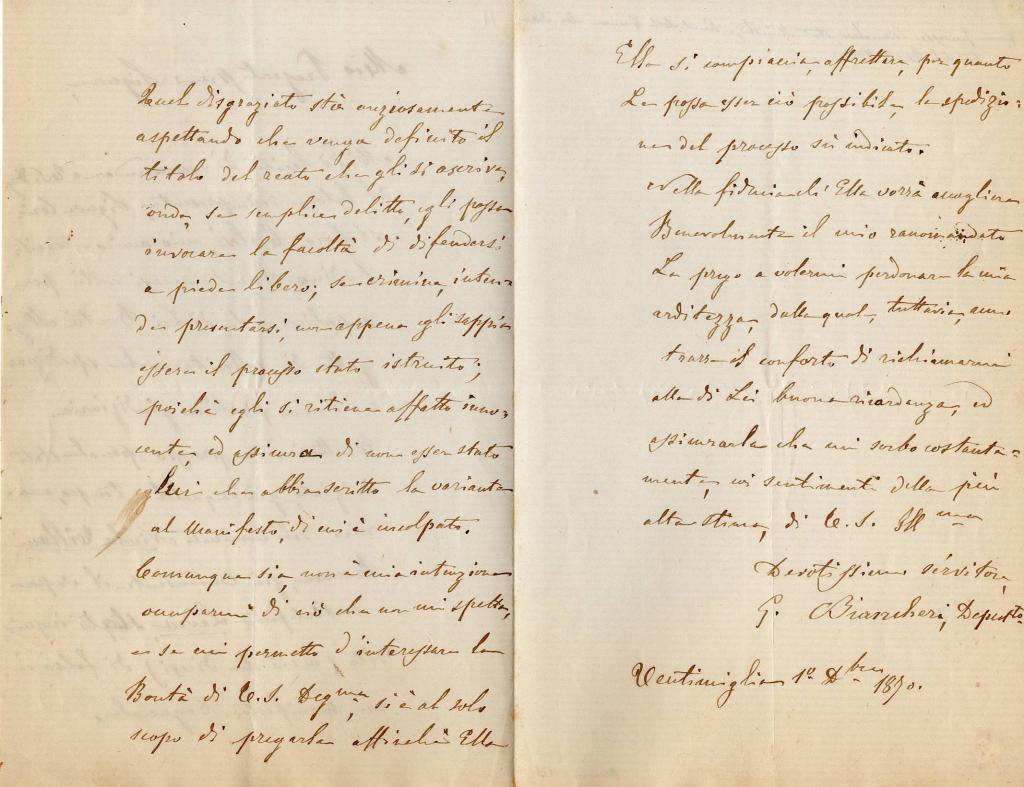 Quel disgraziato stà anziosamente
aspettando che venga definito il
titolo del reato che gli si ascrive,
onde, se semplice delitto, egli possa
invocare la facoltà di difendersi
a piede libero; se crimine, inten-
de presentarsi, non appena egli sappia
essere il processo stato istruito;
poichè egli si ritiene affatto inno-
cente, ed assicura di non esser stato
lui che abbia scritto la variante
al Manifesto, di cui è incolpato.
Comunque sia, non è mia intenzione
occuparmi di ciò che non mi spetta,
e se mi permetto d'interessare la
Bontà di V. S. Degma, si è al solo
scopo di pregarla affinchè Ella
Ella si compiaccia, affrettare, per quanto
Le possa esser ciò possibile, la spedizio=
ne del processo sù indicato.
Nella fiducia ch'Ella vorrà accogliere
Benevolmente il mio raccomandato
La prego a volermi perdonare la mia
arditezza, dalla quale, tuttavia, anno
trarre il conforto di richiamarmi
alla di Lei buona ricordanza, ed
assicurarla che mi serbo costanta=
mente, coi sentimenti della più
alta stima, di V. S. Illma
Devotissimo servitore,
G. Biancheri, Deputto
Ventimiglia 1o Xbre 1870.